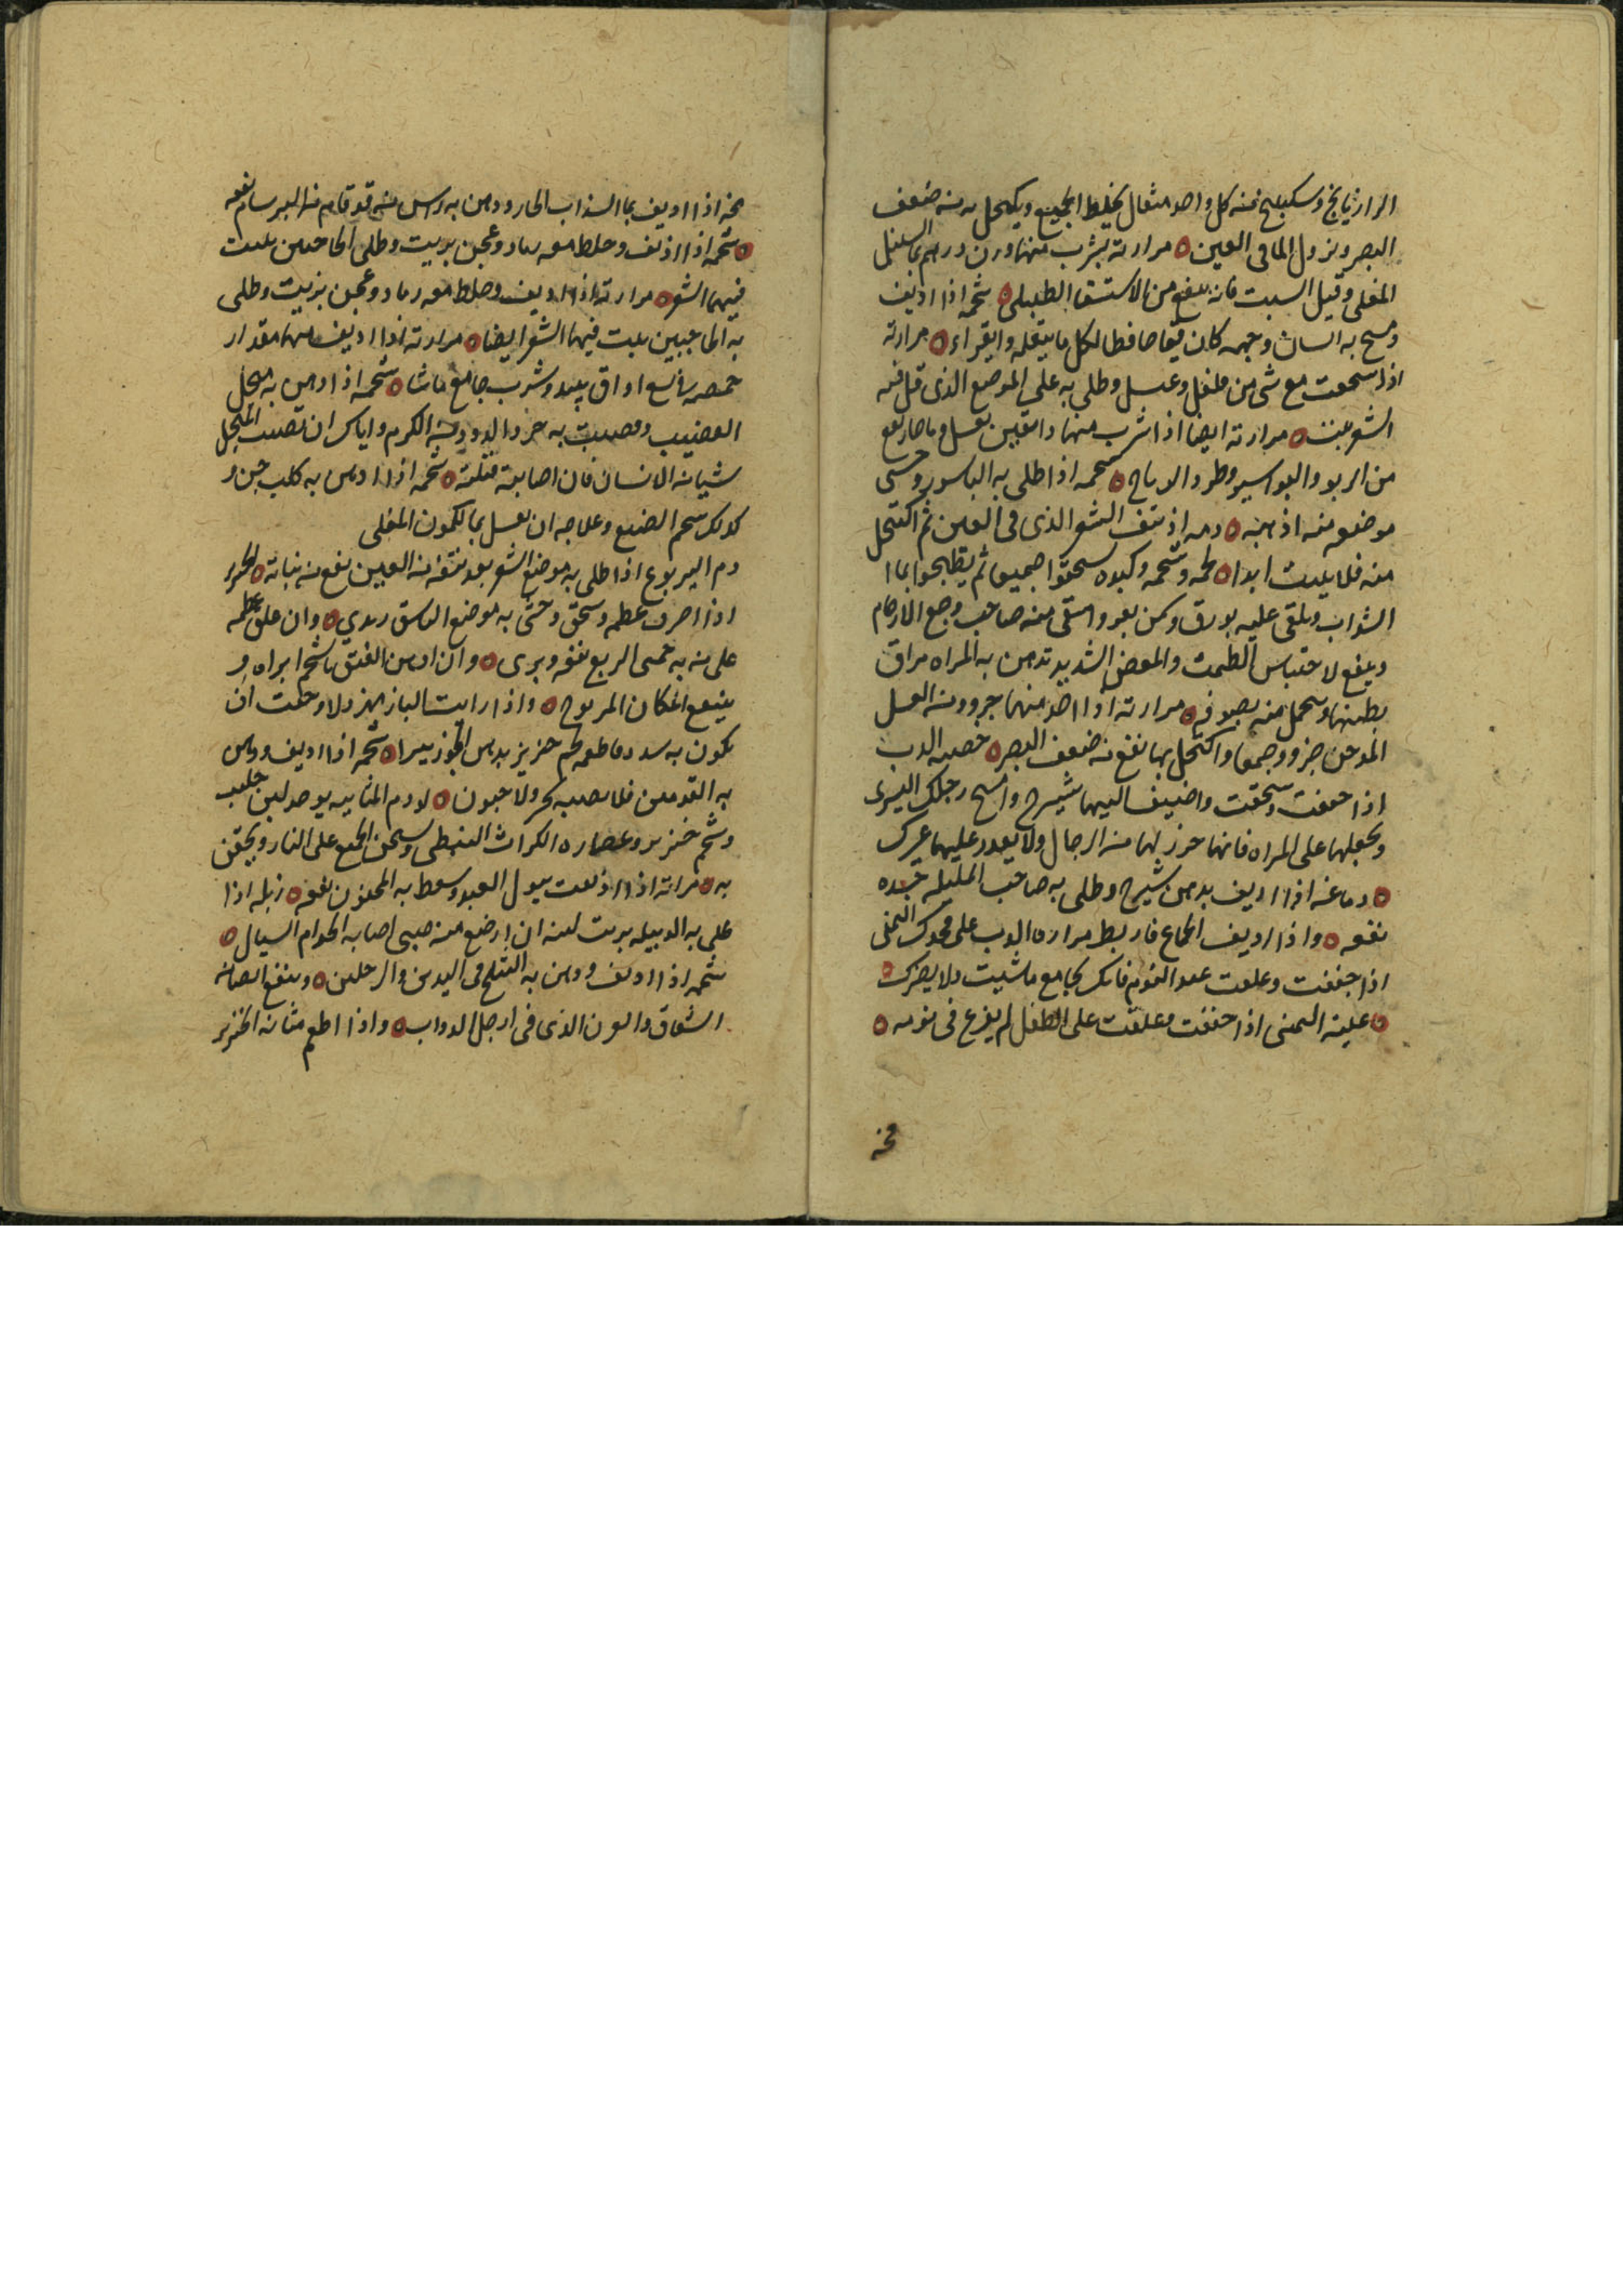 الرازيانج وسكبينج منه كل واحد مثقال يخلط الجميع ويكتحل به من ضعف
البصر ونزول الما فى العين ه مرارته يشرب منها وزن درهم بما السنبل
المغلى وقيل السبت فانه ينفع من الاستسقا الطبلى ه شحمه اذا اذيف
ومسح به السان وجهه كان حافظا لكل ما يتعلمه وايقراء ه مرارته
اذا سحقت مع شى من فلفل وعسل وطلى به على الموضع الذى قل فيه
الشعر ينبت ه مرارته ايضا اذا شرب منها دانقين بعسل وما حار نفع
من الربو والبواسير وطرد الارياح ه شحمه اذا طلى به الباسور وحشى
موضعه منه اذهبه ه دمه اذا نتف الشعر الذى فى العين ثم اكتحل
منه فلا ينبت ابدا ه لحمه وشحمه وكبده سحقوا جميعا ثم يطبخوا بما
الشداب ويلقى عليه بورق وكمن بعد واسقى منه صاحب وجع الارحام
وينفع لاحتباس الطمث والمغص الشديد تدهن به المراه مراق
بطنها وتتحمل منه بصوفه ه مرارته اذا اخذ منها جزو ومن العسل
جزو وجمعا واكتحل بها نفع من ضعف البصر ه خصيه الدب
اذا جففت وسحقت واضيف اليها شيرج وامسح رجلك اليسرى
وتجعلها على المراه فانها حرز لها من الرجال ولا يقدر عليها غيرك
ه دماغه اذا اديف بدهن شيرج وطلى به صاحب المليله جسده
نفعه ه واذا اردت الجماع فاربط مرارة الدب على فخدك اليمنى
اذا جففت وعلقت عند النوم فانك تجامع ما شيت ولا يضرك ه
ه عينه اليمنى اذا جففت وعلقت على الطفل لم يفزع فى نومه ه
مخه
مخه اذا اديف بما السذاب الحار ودهن به راس من قد قام من البرسام نفعه
ه شحمه اذا اذيف وخلط معه رماد وعجن بزيت وطلى الحاجبين ينبت
فيهما الشعر ه مرارته اذا اديف وخلط معه رماد وعجن بزيت وطلى
به الحاجبين ينبت فيها الشعر ايضا ه مرارته اذا اديف منها مقدار
حمصه فى اربع اواق نبيد وشرب جامع ماشا ه شحمه اذا ادهن به منجل
القضيب وقضبت به خرد الدود من الكرم واياك ان تصيب المنجل
شيا من الانسان فان اصابته قتلته ه شحمه اذا ادهن به كلب جن و
كذلك شحم الضبع وعلاجه ان يغسل بما الكمون المغلى
دم اليربوع اذا طلى به موضع الشعر بعد نتفه من العين نفع من نباته ه الخنزير
اذا احرق عظمه وسحق وحشى به موضع الناسور بري ه وان علق عظمه
على من به حمى الربع نفعه وبرى ه وان ادهن الفتق بالشحم ابراه و
ينفع المكان المرضوح ه واذا رايت الباز يهزدلا وخفت ان
يكون به سدد فاطعمه لحم خنزير بدهن الجوز يبرا ه شحمه اذا اديف ودهن
به القدمين فلا يصيبه حر ولا جبون ه لادم المثانيه يوخد لبن حليب
وشحم خنزير وعصاره الكراث النبطى ويسخن الجميع على النار ويحقن
به ه مرارته اذا اذيفت ببول العبد وسعط به المجنون نفعه ه زبله اذا
على به الدبيله بريت لبنه ان ارضع منه صبى اصابه الحوام السيال ه
شحمه اذا اديف ودهن به القلح فى اليدين والرجلين ه وينفع ايضا من
الشقاق والعرن الذى فى ارجل الدواب ه واذا اطعم مثانه الخنزير